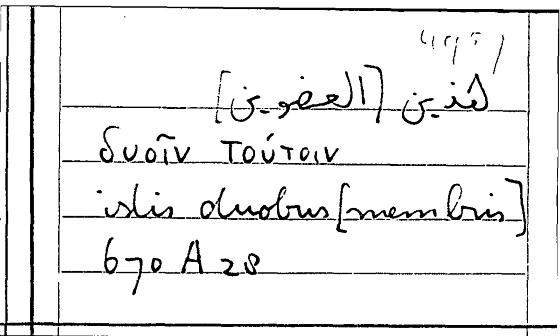 لهذين [العضوين]
δυοῖν τούτοιν
istis duobus [membris]
670 A 28